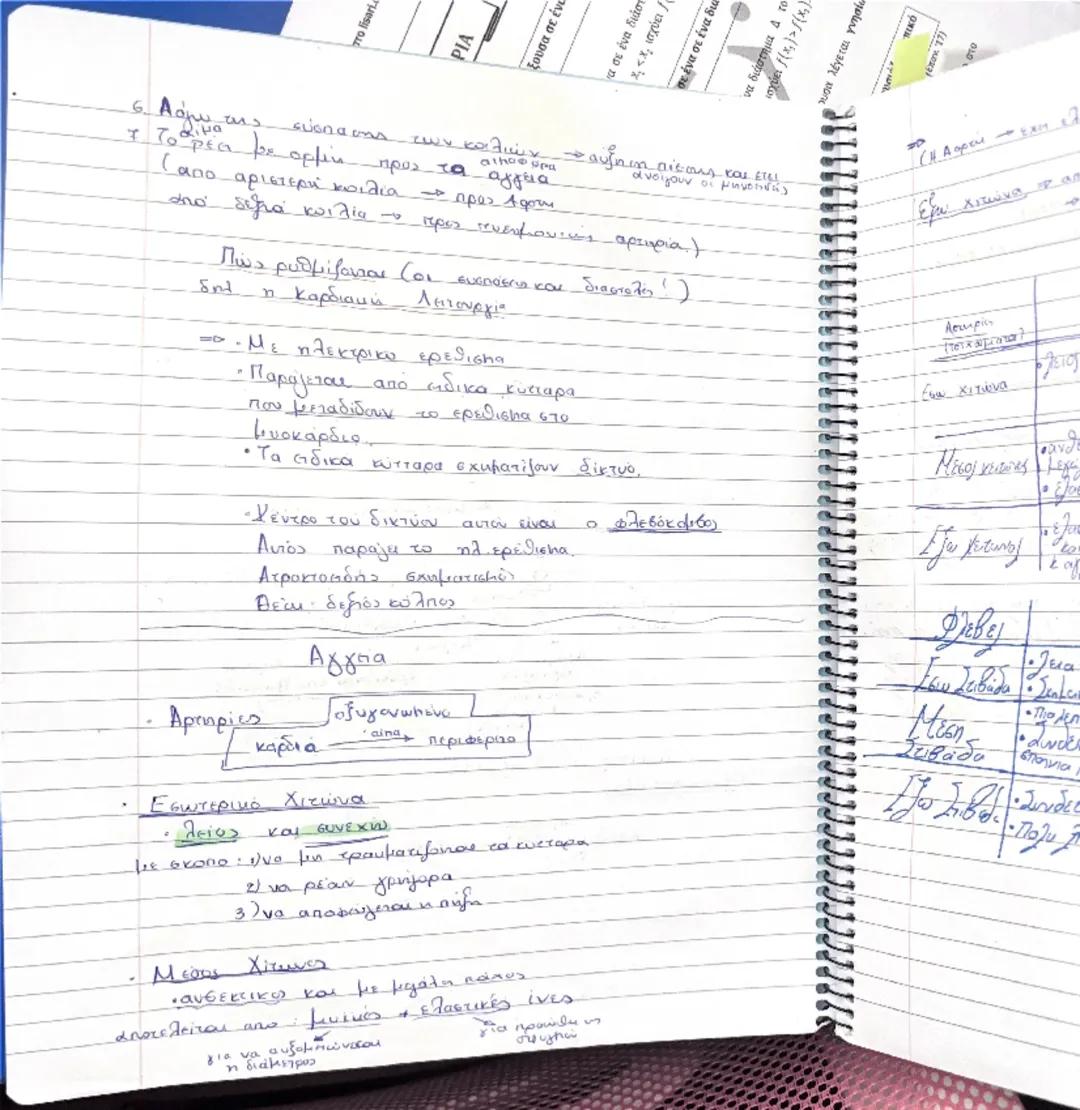 6. Λόγω της σύσπασης των κοιλιών → αύξηση πίεσης και έτσι ανοίγουν οι μηνοειδείς
7. Το αίμα ρέει με ορμή προς τα αιμοφόρα αγγεία
(από αριστερή κοιλία → προς Αορτή
από δεξιά κοιλία → προς πνευμονικές αρτηρία)
Πώς ρυθμίζονται (οι συσπάσεις και διαστολή!)
δηλ η Καρδιακή Λειτουργία
⇒ • Με ηλεκτρικό ερέθισμα
• Παράγεται από ειδικά κύτταρα
που μεταδίδουν το ερέθισμα στο
μυοκάρδιο.
• Τα ειδικά κύτταρα σχηματίζουν δίκτυο.
• Κέντρο του δικτύου αυτού είναι ο φλεβόκομβος
Αυτός παράγει το ηλ. ερέθισμα.
Ατρακτοειδής σχηματισμός
Θέση: δεξιός κόλπος
Αγγεία
• Αρτηρίες οξυγονωμένο
καρδιά αίμα → περιφέρεια
• Εσωτερικό Χιτώνα
• λείος και συνεχής
με σκοπό: 1) να μη τραυματίζονται τα κύτταρα
2) να ρέουν γρήγορα
3) να αποφεύγεται η πήξη
• Μέσος Χιτώνας
• ανθεκτικός και με μεγάλο πάχος
αποτελείται από: μυικές + ελαστικές ίνες
για να αυξομειώνεται η διάμετρος
για προώθηση
⇒ (Η Αορτή → έχει
Έξω χιτώνα ⇒
Αρτηρίες
(τοιχώματα)
Εσω χιτώνα
• λείος
Μέσος χιτώνας
Έξω χιτώνας
Φλέβες
Εσω Στιβάδα
• λεία
Μέση Στιβάδα
• Πιο λεπ
σπάνια
Έξω Στιβάδ.
• Συνδε
• Πολύ
ΡΙΑ
ξουσα σε ένα
x₁ < x₂ ισχύει f(
σε ένα διάστημα Δ το
ισχύει f(x₁) > f(x₂)
λέγεται γνησίω